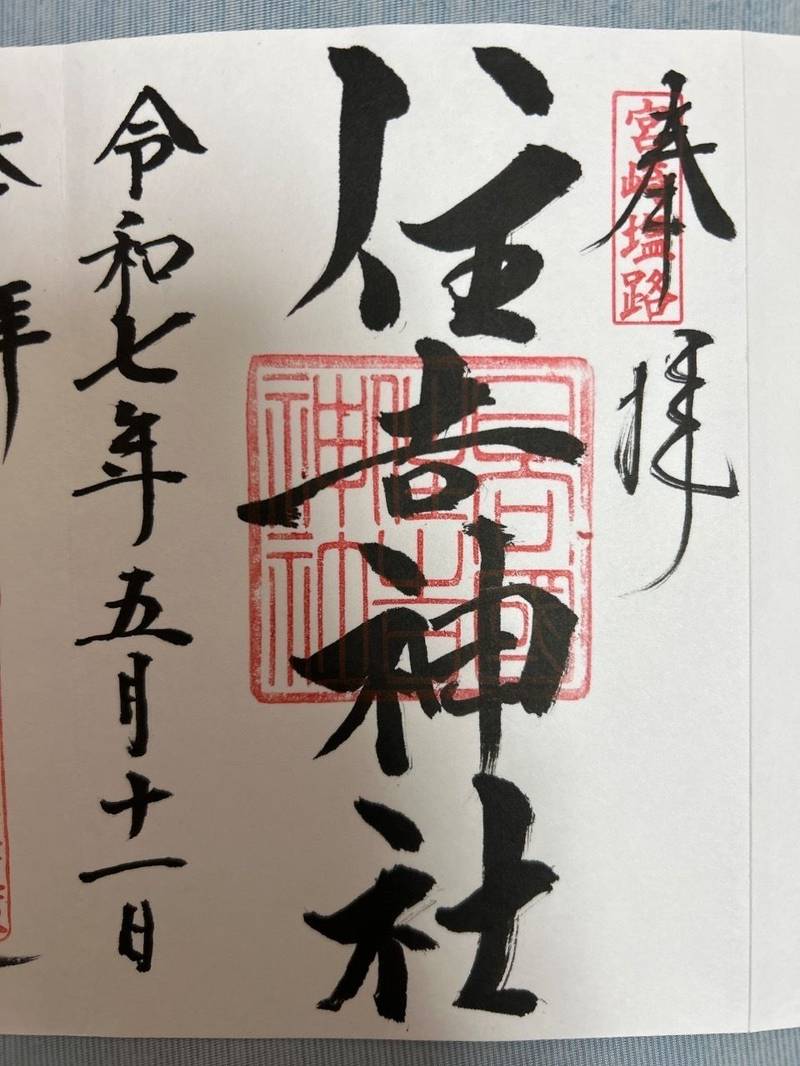 奉拝
宮崎塩路
住吉神社
日向國
住吉
神社
令和七年五月十一日